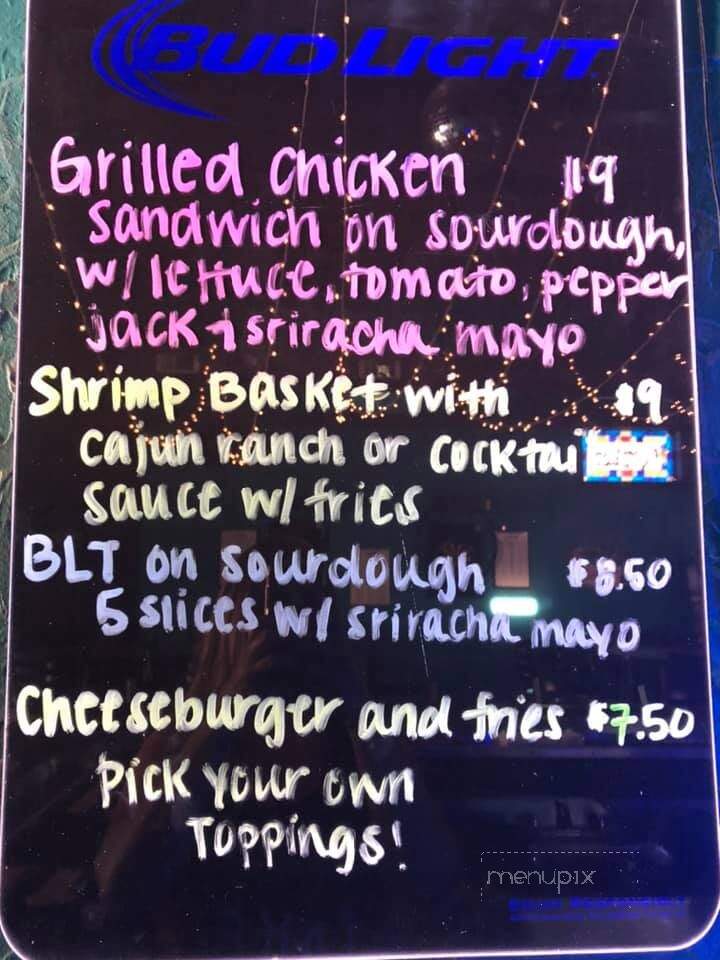 BUD LIGHT
Grilled chicken $9
sandwich on sourdough,
w/ lettuce, tomato, pepper
jack & sriracha mayo
Shrimp Basket with $9
cajun ranch or cocktail
sauce w/ fries
BLT on sourdough $8.50
5 slices w/ sriracha mayo
Cheeseburger and fries $7.50
Pick your own
Toppings!
menupix